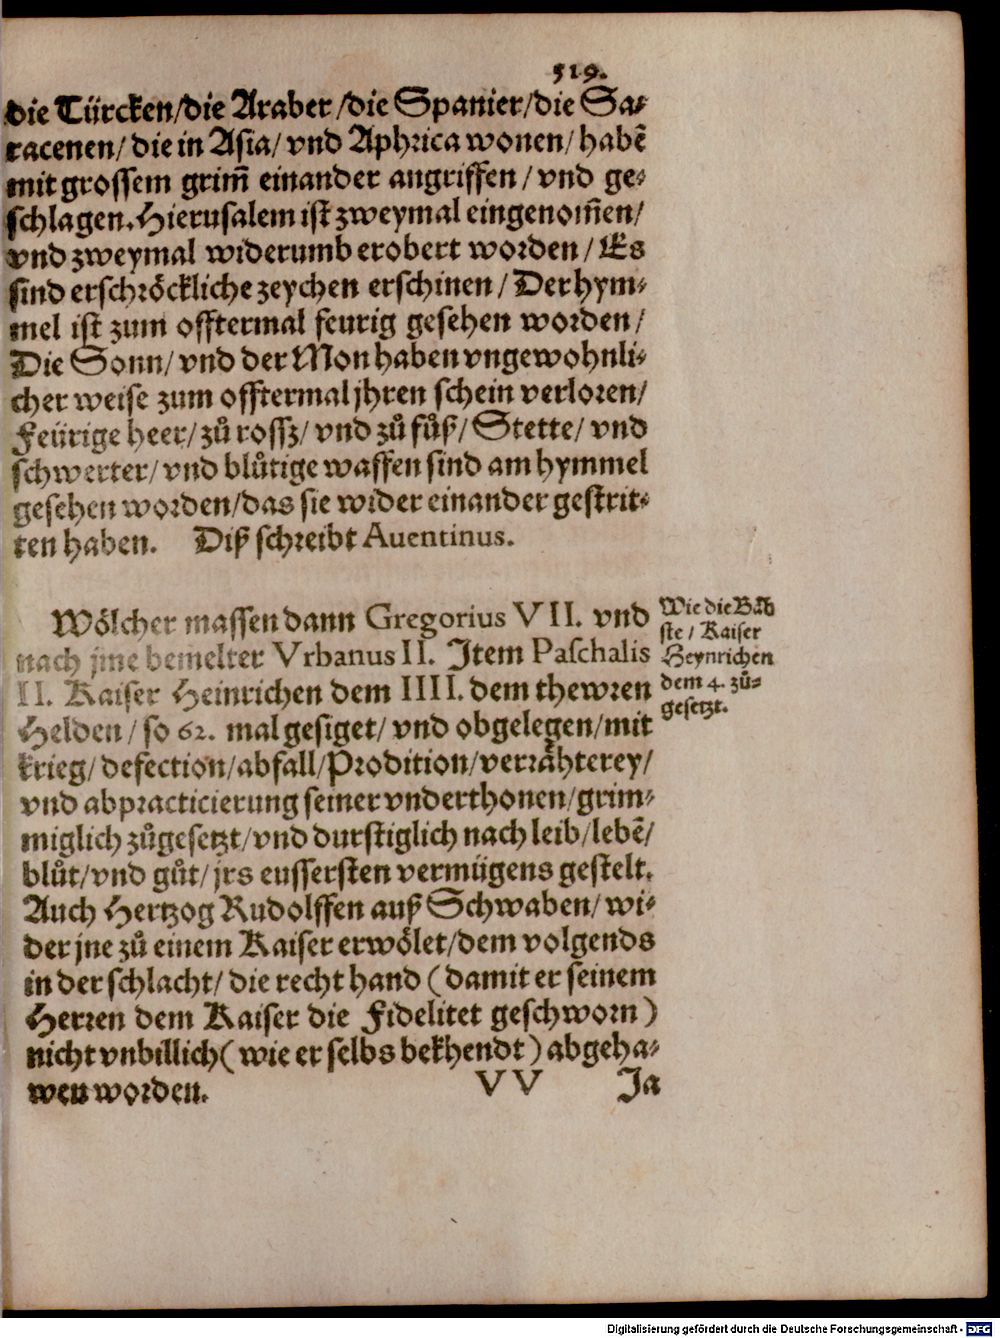 519.
die Türcken/die Araber/die Spanier/die Sa⸗
racenen/ die in Asia/ vnd Aphrica wonen/ habē
mit grossem grim̄ einander angriffen/ vnd ge⸗
schlagen. Hierusalem ist zweymal eingenom̄en/
vnd zweymal widerumb erobert worden/ Es
sind erschröckliche zeychen erschinen/ Der hym⸗
mel ist zum offtermal feurig gesehen worden/
Die Sonn/ vnd der Mon haben vngewohnli⸗
cher weise zum offtermal jhren schein verloren/
Feürige heer/ zů rossz/ vnd zů fůß/ Stette/ vnd
schwerter/ vnd blůtige waffen sind am hymmel
gesehen worden/das sie wider einander gestrit⸗
ten haben. Diß schreibt Auentinus.
Wölcher massen dann Gregorius VII. vnd
nach jme bemelter Vrbanus II. Item Paschalis
II. Kaiser Heinrichen dem IIII. dem thewren
Helden/ so 62. mal gesiget/ vnd obgelegen/mit
krieg/ defection/abfall/Prodition/verrähterey/
vnd abpracticierung seiner vnderthonen/grim⸗
miglich zůgesetzt/vnd durstiglich nach leib/lebē/
blůt/vnd gůt/jrs eussersten vermügens gestelt.
Auch Hertzog Rudolffen auß Schwaben/ wi⸗
der jne zů einem Kaiser erwölet/dem volgends
in der schlacht/ die recht hand (damit er seinem
Herren dem Kaiser die Fidelitet geschworn)
nicht vnbillich (wie er selbs bekhendt) abgeha⸗
wen worden. VV Ja
Wie die Bäb
ste/ Kaiser
Heynrichen
dem 4. zů⸗
gesetzt.
Digitalisierung gefördert durch die Deutsche Forschungsgemeinschaft - DFG